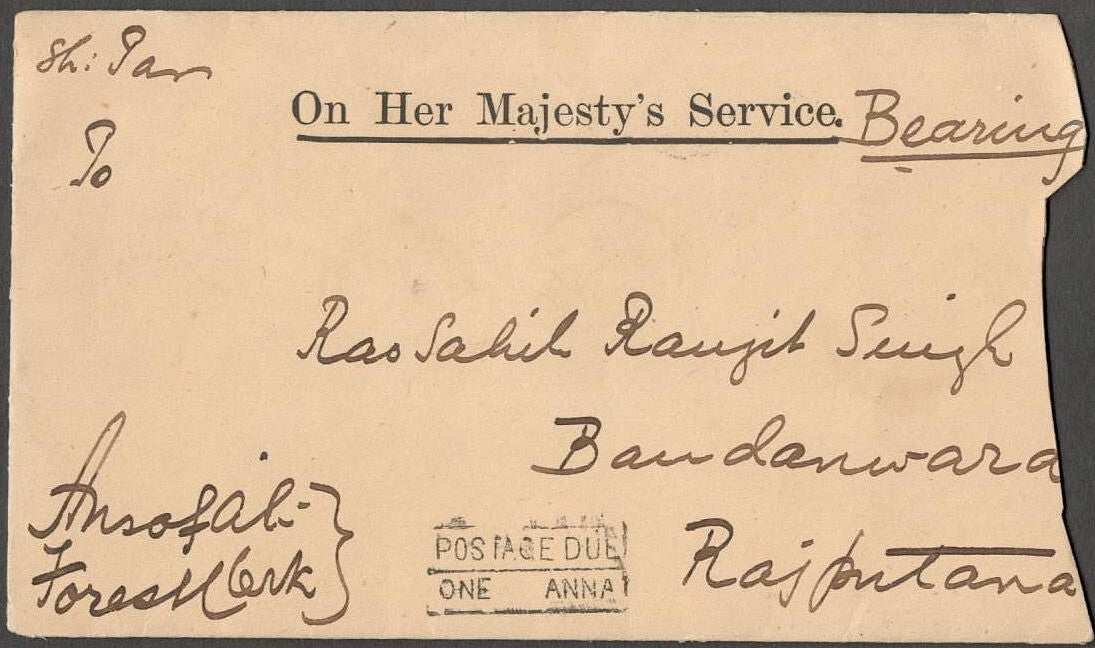 To
On Her Majesty's Service. Bearing
Rao Sahib Ranjit Singh
Bandanwara
Rajputana
Forest Clerk
POSTAGE DUE
ONE ANNA